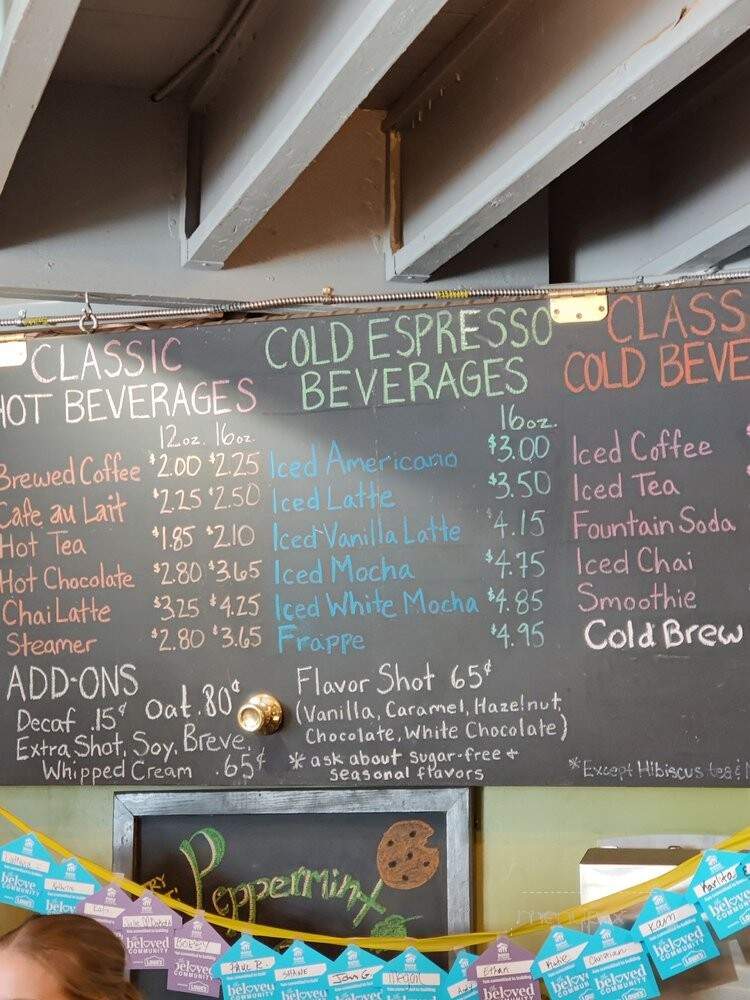 CLASSIC
HOT BEVERAGES
12oz. 16oz.
Brewed Coffee $2.00 $2.25
Cafe au Lait $2.25 $2.50
Hot Tea $1.85 $2.10
Hot Chocolate $2.80 $3.65
Chai Latte $3.25 $4.25
Steamer $2.80 $3.65
ADD-ONS
Decaf .15¢ Oat .80¢
Extra Shot, Soy, Breve,
Whipped Cream .65¢
COLD ESPRESSO
BEVERAGES
16oz.
Iced Americano $3.00
Iced Latte $3.50
Iced Vanilla Latte $4.15
Iced Mocha $4.75
Iced White Mocha $4.85
Frappe $4.95
Flavor Shot 65¢
(Vanilla, Caramel, Hazelnut,
Chocolate, White Chocolate)
*ask about sugar-free +
seasonal flavors
CLASS
COLD BEVE
Iced Coffee
Iced Tea
Fountain Soda
Iced Chai
Smoothie
Cold Brew
*Except Hibiscus tea
Peppermint
beloved
COMMUNITY
LOWE'S
PAUL B.
SHANE
Jon G.
Ethan
Kam